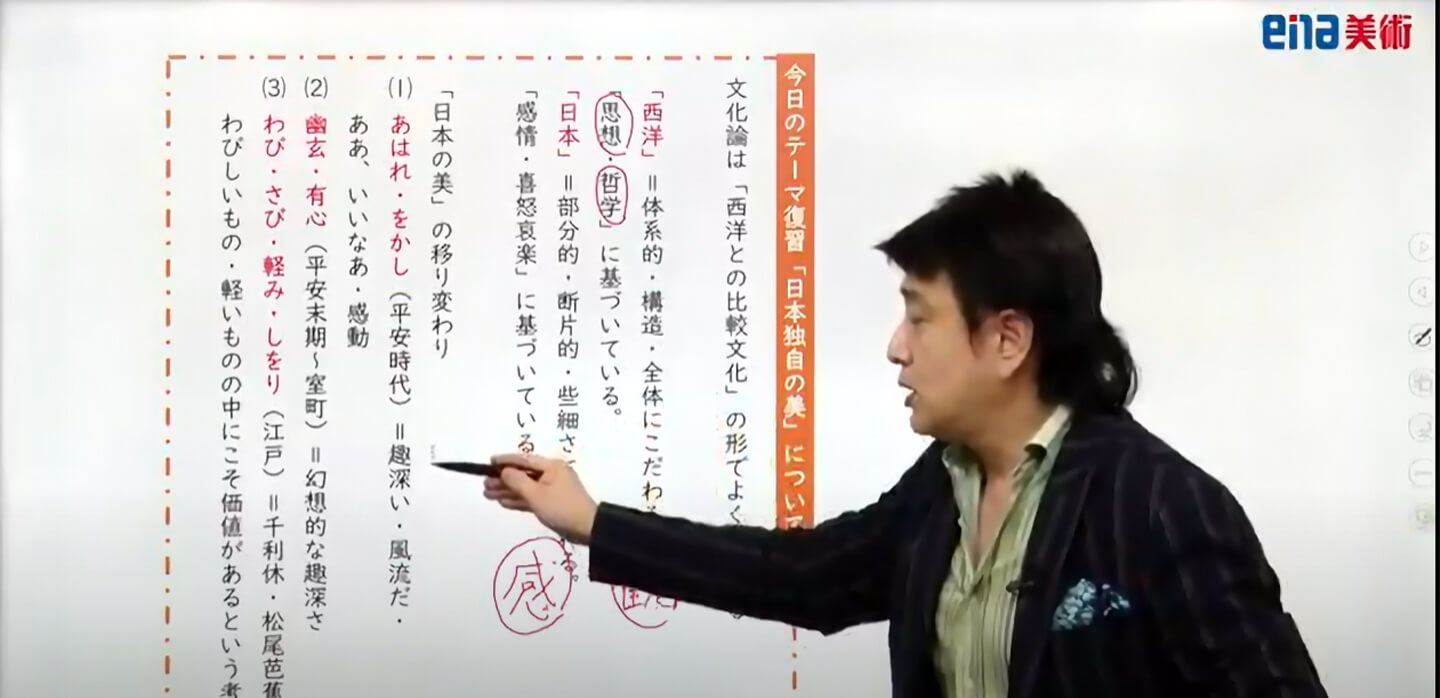 ena美術
今日のテーマ復習「日本独自の美」について
文化論は「西洋との比較文化」の形でよく
「西洋」＝体系的・構造・全体にこだわ
「思想・哲学」に基づいている。
「日本」＝部分的・断片的・些細さ
「感情・喜怒哀楽」に基づいている
感
「日本の美」の移り変わり
(1) あはれ・をかし（平安時代）＝趣深い・風流だ・
ああ、いいなあ・感動
(2) 幽玄・有心（平安末期～室町）＝幻想的な趣深さ
(3) わび・さび・軽み・しをり（江戸）＝千利休・松尾芭蕉
わびしいもの・軽いものの中にこそ価値があるという考